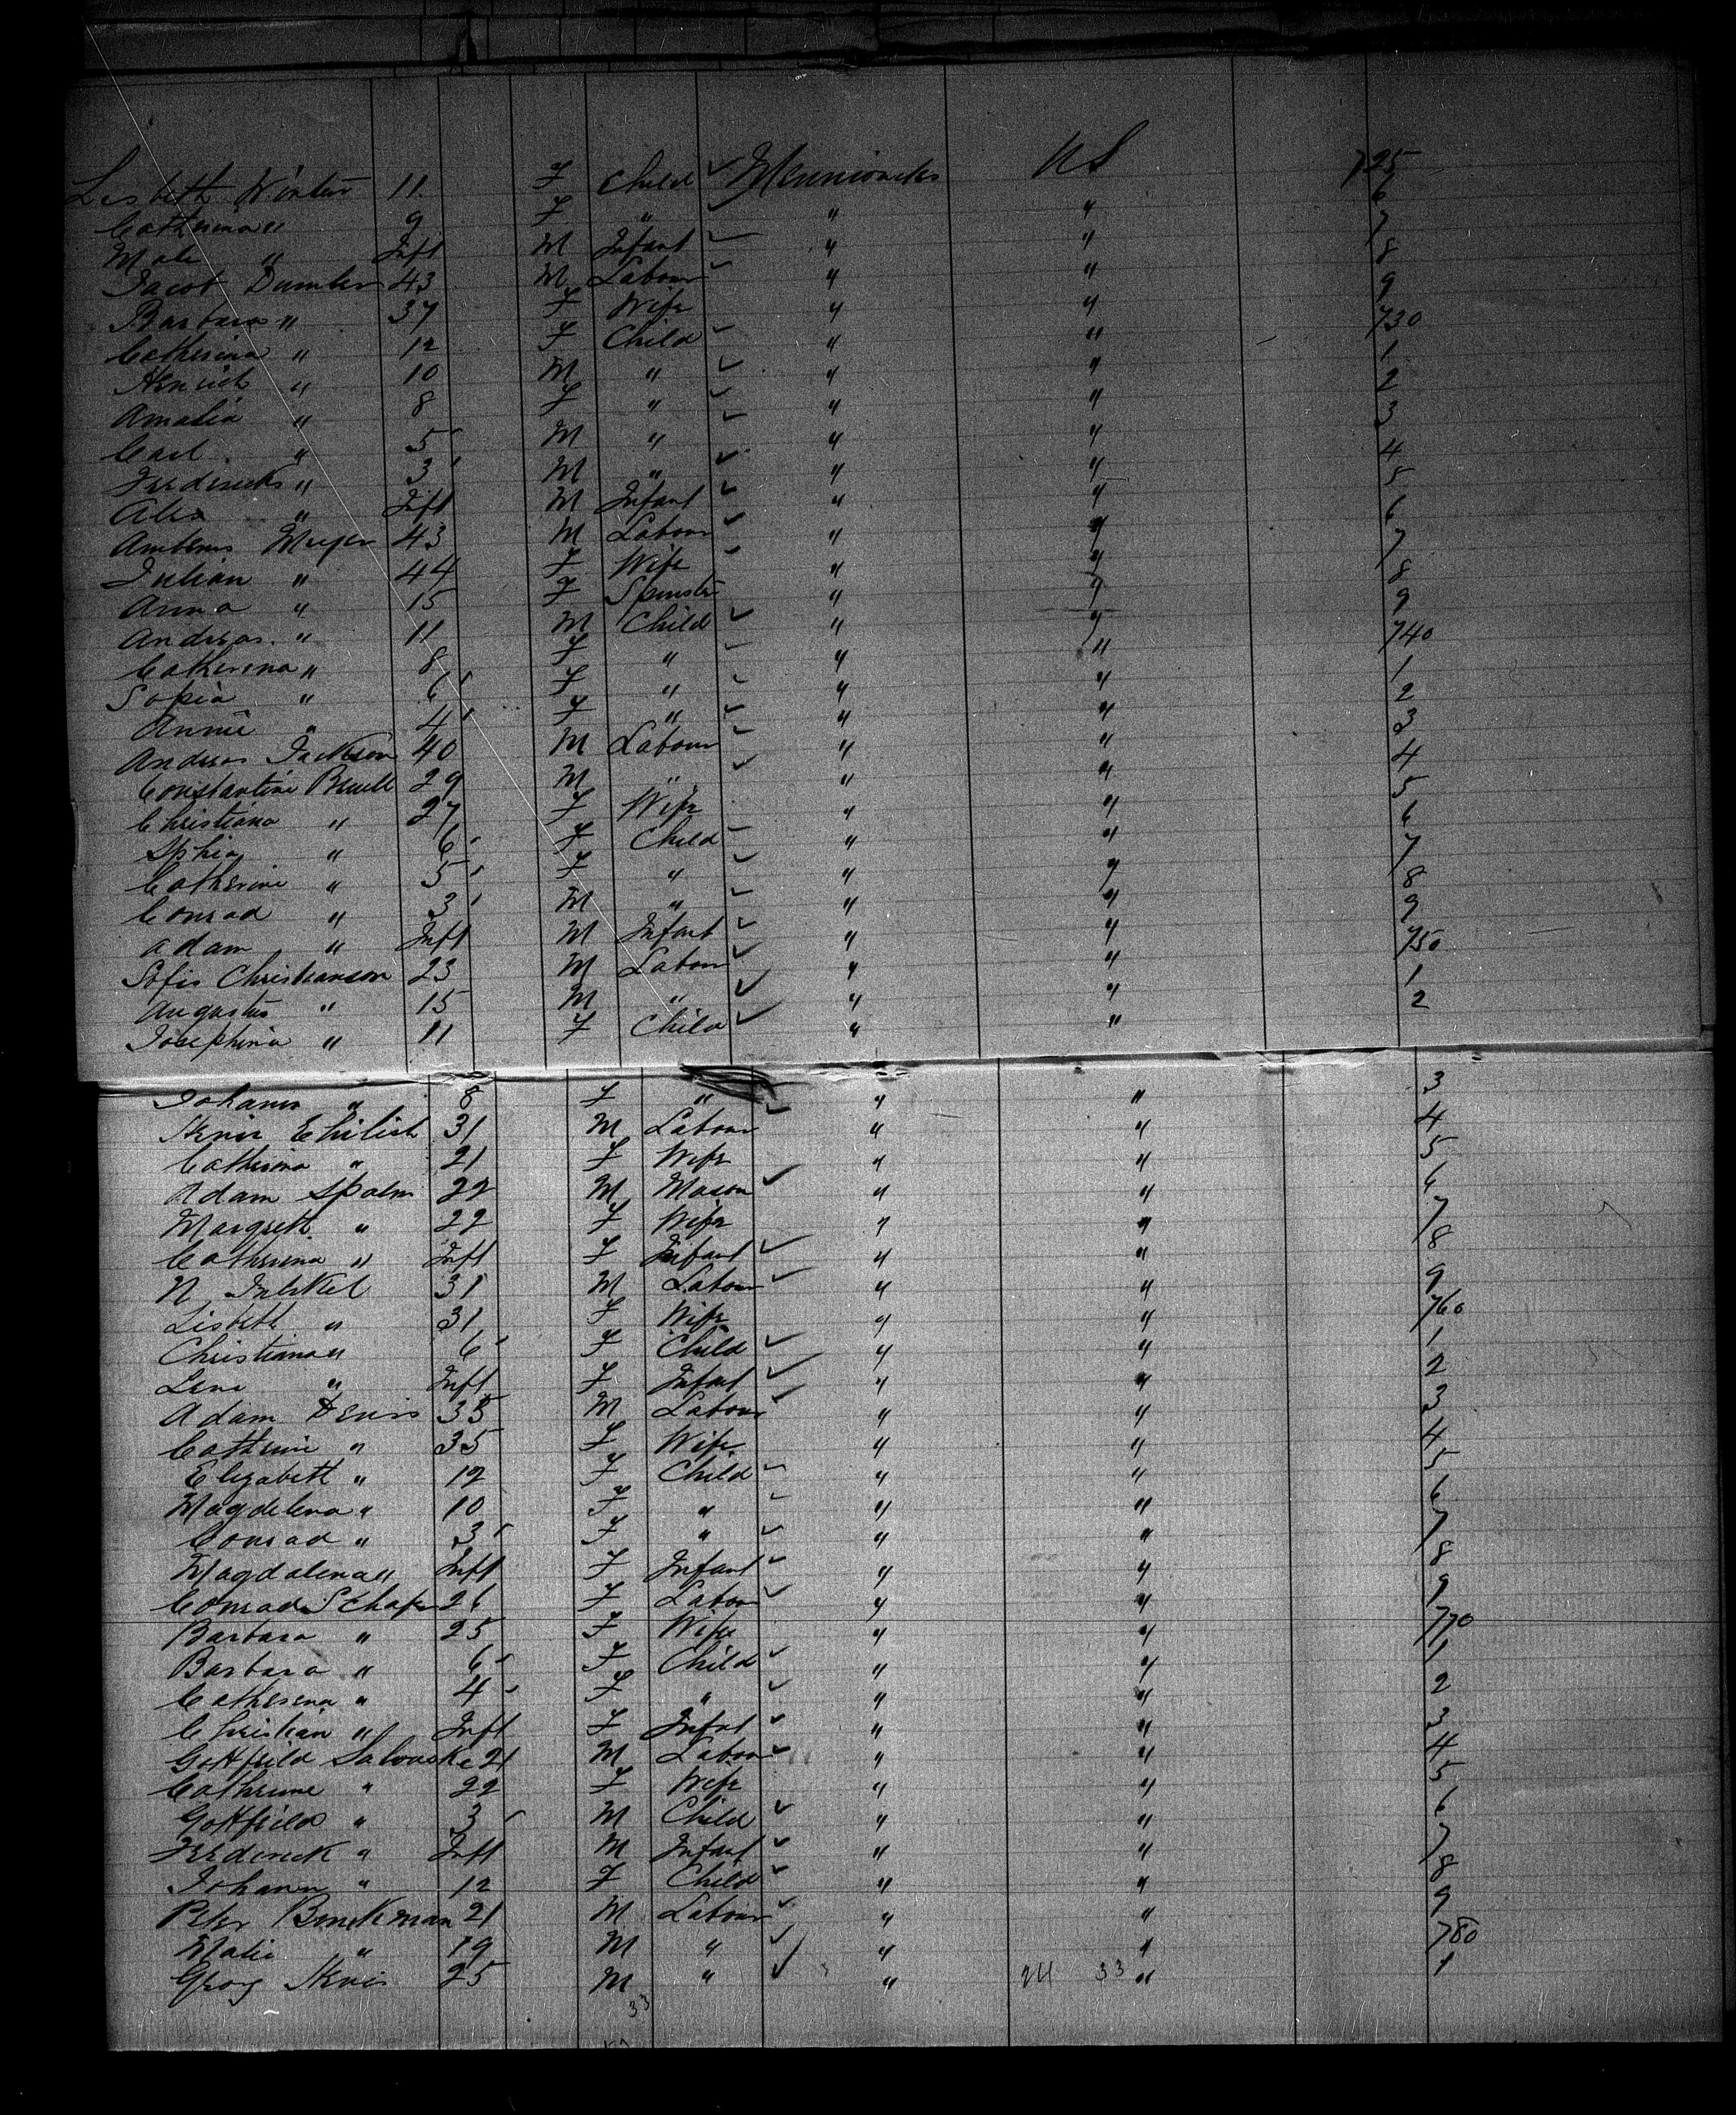 Lisbeth Winter 11 F Child ✓ Mennionites US 725
Catherina " 9 F " ✓ " " 6
Male " Inft M Infant ✓ " " 7
Jacob Dumler 43 M Labour ✓ " " 8
Barbara " 37 F Wife " " 9
Catherina " 12 F Child ✓ " " 730
Henrich " 10 M " ✓ " " 1
Amalia " 8 F " ✓ " " 2
Carl " 5 M " ✓ " " 3
Fredericks " 3 M " ✓ " " 4
Alex " Inft M Infant ✓ " " 5
Ambems Meyer 43 M Labour ✓ " " 6
Julian " 44 F Wife " " 7
Anna " 15 F Spinster " " 8
Andreas " 11 M Child ✓ " " 9
Catherina " 8 F " ✓ " " 740
Sopia " 6 F " ✓ " " 1
Annie " 4 F " ✓ " " 2
Andreas Jackson 40 M Labour ✓ " " 3
Constantine Bruell 29 M " ✓ " " 4
Christiana " 27 F Wife " " 5
Sphia " 6 F Child ✓ " " 6
Catherine " 5 F " ✓ " " 7
Conrad " 3 M " ✓ " " 8
Adam " Inft M Infant ✓ " " 9
Sofis Christianson 23 M Labour ✓ " " 750
Augustus " 15 M " ✓ " " 1
Josephina " 11 F Child ✓ " " 2
Johann " 8 F " ✓ " " 3
Henri Ehilich 31 M Labour " " 4
Catherina " 21 F Wife " " 5
Adam Spalm 22 M Mason ✓ " " 6
Margreth " 22 F Wife " " 7
Catherina " Inft F Infant ✓ " " 8
N 31 M Labour ✓ " " 9
Lisbeth " 31 F Wife " " 760
Christiana " 6 F Child ✓ " " 1
Lena " Inft F Infant ✓ " " 2
Adam Denis 35 M Labour ✓ " " 3
Cathrine " 35 F Wife " " 4
Elizabeth " 12 F Child ✓ " " 5
Magdelena " 10 F " ✓ " " 6
Conrad " 3 F " ✓ " " 7
Magdalena " Inft F Infant ✓ " " 8
Conrad Schafer 26 F Labour ✓ " " 9
Barbara " 25 F Wife " " 770
Barbara " 6 F Child ✓ " " 1
Catherina " 4 F " ✓ " " 2
Christian " Inft F Infant ✓ " " 3
Gottfield Salowske 21 M Labour ✓ " " 4
Cathrine " 22 F Wife " " 5
Gottfield " 3 M Child ✓ " " 6
Frederick " Inft M Infant ✓ " " 7
Johann " 12 F Child ✓ " " 8
Peter Brinckman 21 M Labour ✓ " " 9
Malie " 19 M " ✓ " " 780
Georg Henis 25 M " ✓ " 24 33 " 1
33